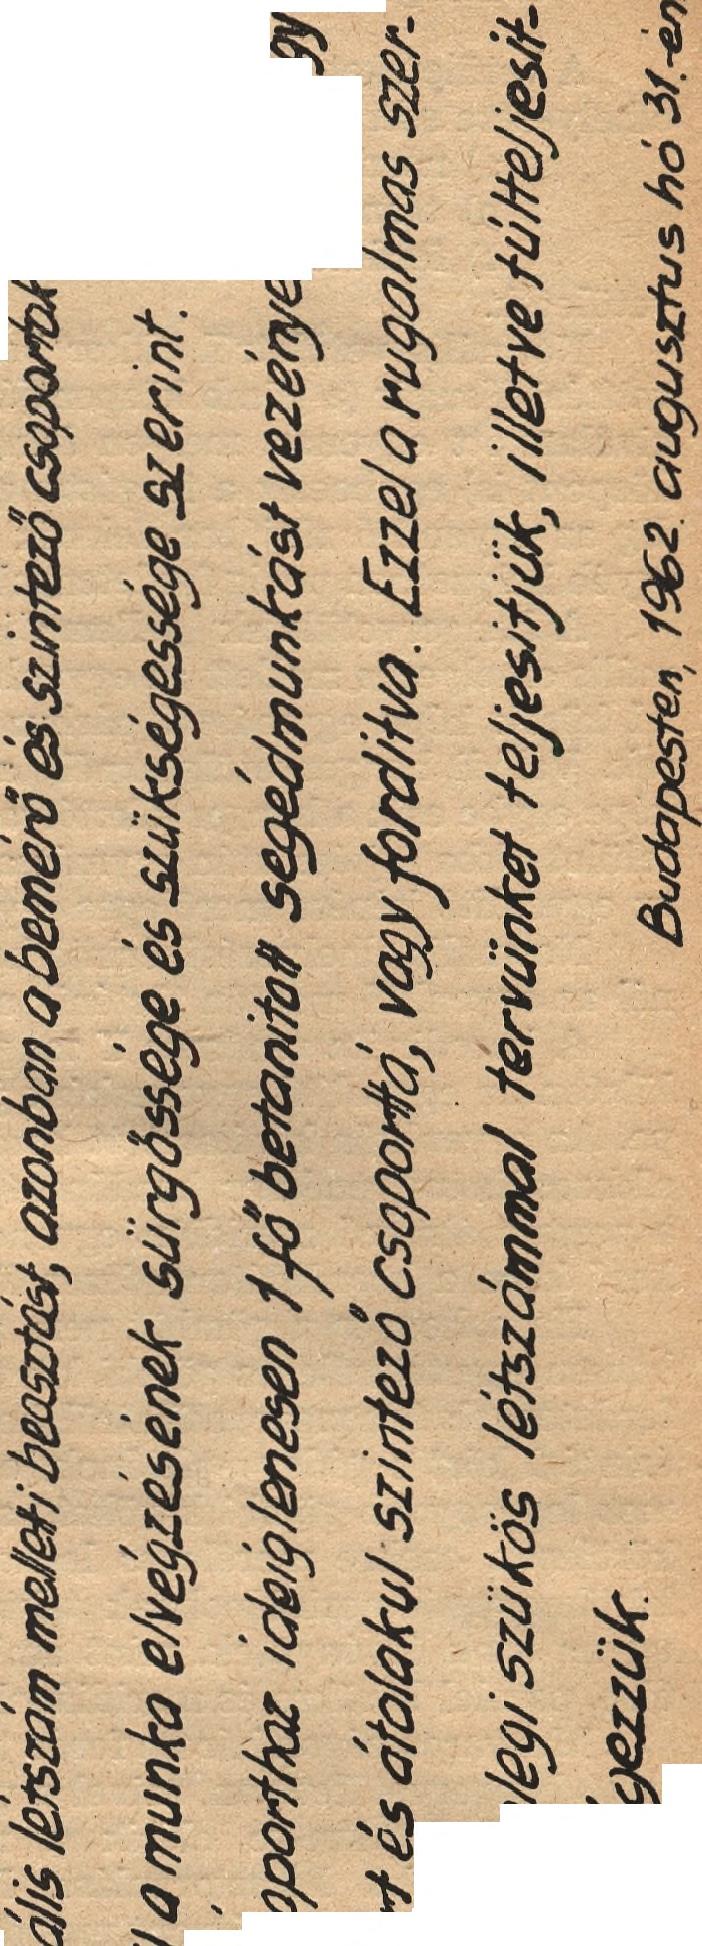 ális létszám melleti beosztást, azonban a bemérő és szintező csoportok
a munka elvégzésének sürgőssége és szükségessége szerint.
oporthoz ideiglenesen 1 fő betanitott segédmunkást vezénye gy
rt és átalakul szintező csoporttá, vagy forditva. Ezzel a rugalmas szer-
legi szükös létszámmal tervünket teljesitjük, illetve túlteljesit-
gezzük.
Budapesten, 1962. augusztus hó 31.-én